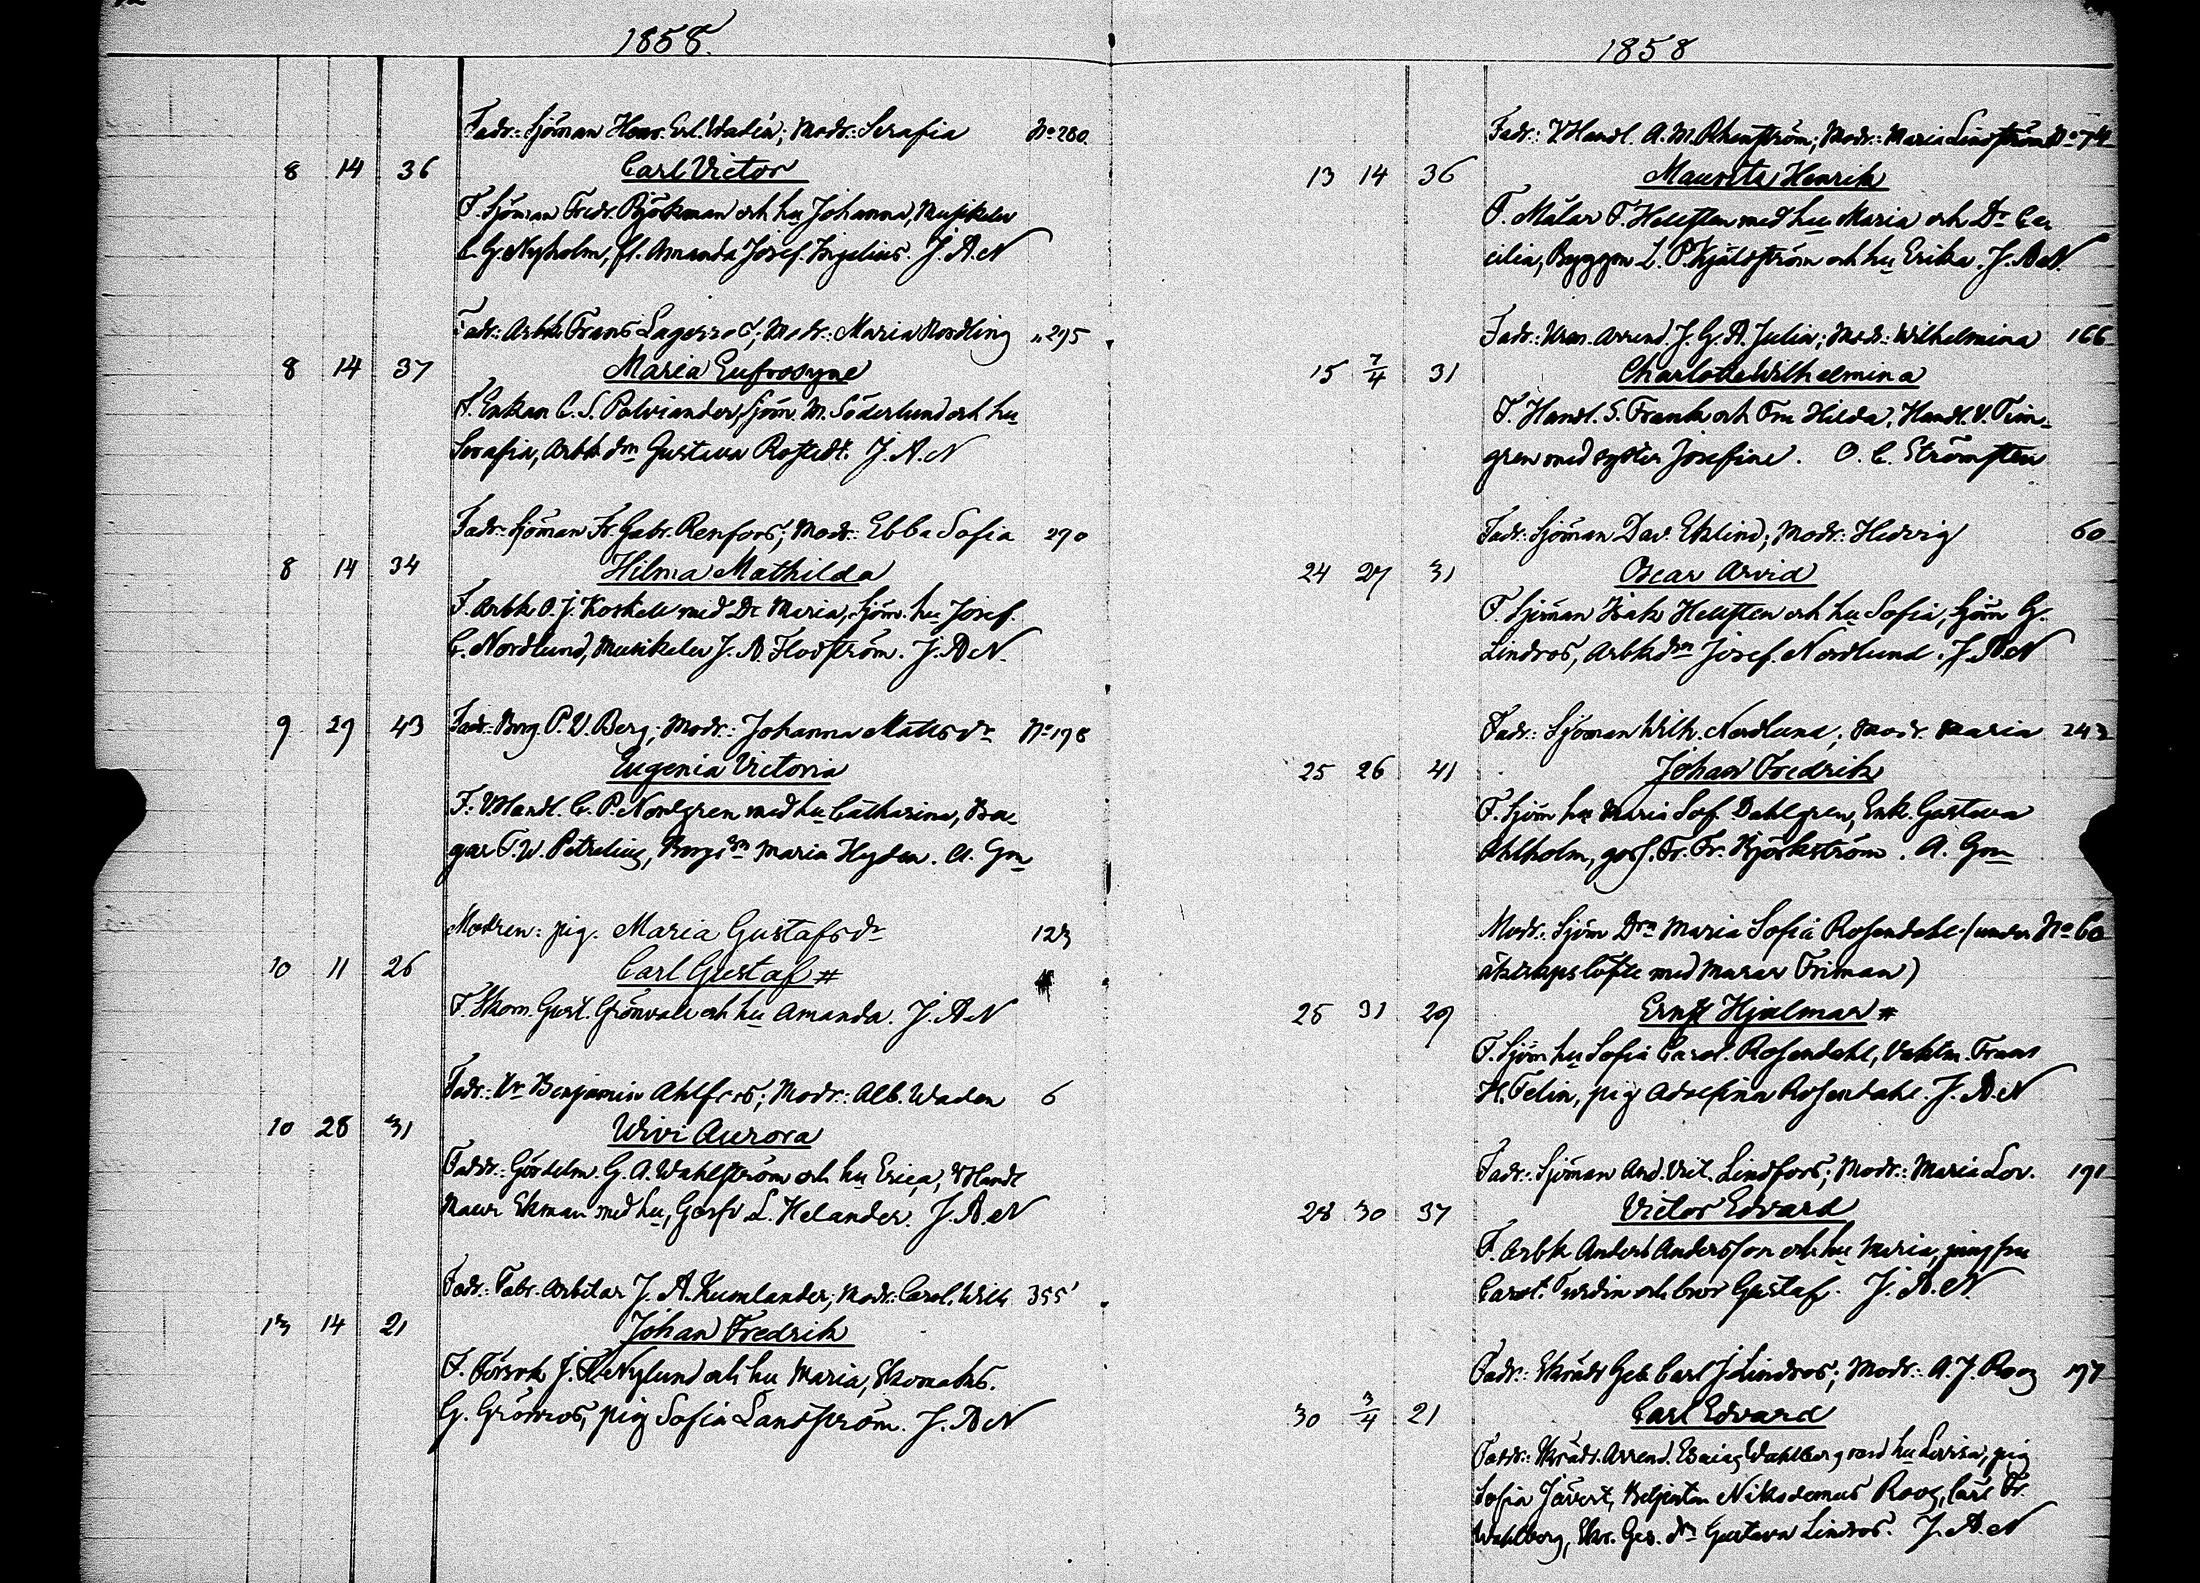 1858.
Fadr: Sjöman Henr. Erl. Wadén; Modr: Serafia No 280
8 14 36 Carl Victor
F. Sjöman Fredr. Björkman och hu Johanna, Musikelev
C. G. Nyholm, fl. Amanda Josef. Ingelius. J. A. N
Fadr: Arbk Frans Lagerro ; Modr: Maria Nordling " 295
8 14 37 Maria Eufrosyne
F. Enkan C. S. Palviander, Sjöm. M. Söderlund och hu
Serafia, Arbk drn Gustava Rostedt. J. A. N
Fadr: Sjöman Fr. Gabr. Renfors; Modr: Ebba Sofia 290
8 14 34 Hilma Mathilda
F. Arbk O. J. Koskell med Dr Maria, Sjöm. hu Josef.
C. Nordlund, Musikelev J. A. Flodström. J. A. N.
9 29 43 Fadr: Borg. P. W. Berg; Modr: Johanna Mattsdr No 198
Eugenia Victoria
F: VHandl. C. P. Nordgren med hu Catharina, Ba-
gar F. W. Petrelius, Borg: drn Maria Hyden. A. Gm
Modren: pig. Maria Gustafsdr 123
10 11 26 Carl Gustaf #
F. Skom. Gust. Grönvall och hu Amanda. J. A. N
Fadr: Benjamin Ahlfors; Modr: Alb. Waden 6
10 28 31 Wivi Aurora
Faddr: Gördelm. G. A. Wahlström och hu Erica, VHandl
Maur Ekman med hu, Garfv L. Helander. J. A. N
Fadr: Fabr. Arbetar J. A. Kumlander; Modr: Carol. Wilh 355
13 14 21 Johan Fredrik
F. J. F. Nylund och hu Maria, Skomaks.
G. Grönroos, pig Sofia Landström. J. A. N
1858
Fadr: VHandl. A. M. Rhenström; Modr: Maria Lindström No 74
13 14 36 Mauritz Henrik
F. Målar F. Hellsten med hu Maria och Dr Ce-
cilia, Byggm L. P. Kjäldström och hu Erika. J. A. N.
Fadr: Arrend. J. G. A. Julin; Modr: Wilhelmina 166
15 7/4 31 Charlotta Wilhelmina
F. Handl. S. Frank och Fru Hilda, Handl. V. Tim-
gren med syster Josefine. O. C. Strömsten
Fadr: Sjöman Dav. Eklind; Modr: Hedvig 60
24 27 31 Oscar Arvid
F. Sjöman Isak Hellsten och hu Sofia, Sjöm G.
Lindros, Arbk drn Josef. Nordlund. J. A. N
Fadr: Sjöman Wilh. Nordlund; Modr. Maria 243
25 26 41 Johan Fredrik
F. Sjöm hu Maria Sof. Dahlgren, Enk. Gustava
Ahlholm, goss. Fr. Fr. Björkström. A. Gm
Modr: Sjöm Drn Maria Sofia Rosendahl (under No 60
äktskapslöfte med Murar Friman)
25 31 29 Ernst Hjalmar #
F. Sjöm hu Sofia Carol. Rosendahl, Vaktm. Frans
H. Felin, pig Adolfina Rosendahl. J. A. N
Fadr: Sjöman And. Vict. Lindfors; Modr: Maria Lov. 191
28 30 37 Victor Edvard
F. Arbk Anders Andersson och hu Maria, jungfru
Carol. Turdin och bror Gustaf. J. A. N.
Fadr: Skrädr Ges. Carl J Lindros; Modr: A. J. Roos 197
30 3/4 21 Carl Edvard
Faddr: Skrädr. Arrend. Esaias Wahlberg med hu Lovisa, pig
Sofia Jävert, Betjenten Nikodemus Roos, Carl Fr.
Wahlberg, Skr. Ges. drn Gustava Lindros. J. A. N